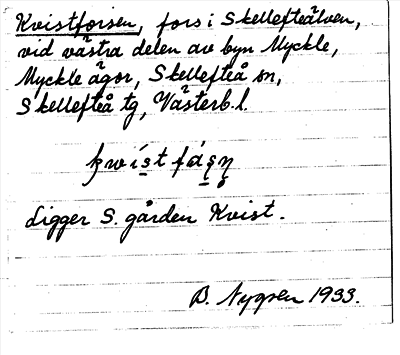 Kvistforsen, fors i Skellefteälven,
vid västra delen av byn Myckle,
Myckle ägor, Skellefteå sn,
Skellefteå tg, Västerb. l.
Ligger S. gården Kvist.
B. Nygren 1933.